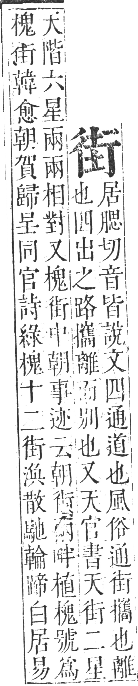 街
居腮切音皆說文四通道也風俗通街攜也離
也四出之路攜離而別也又天官書天街二星
又槐街中朝事迹云朝街兩畔植槐號為
天階六星兩兩相對
槐街韓愈朝賀歸呈同官詩綠槐十二街渙散馳輪蹄白居易